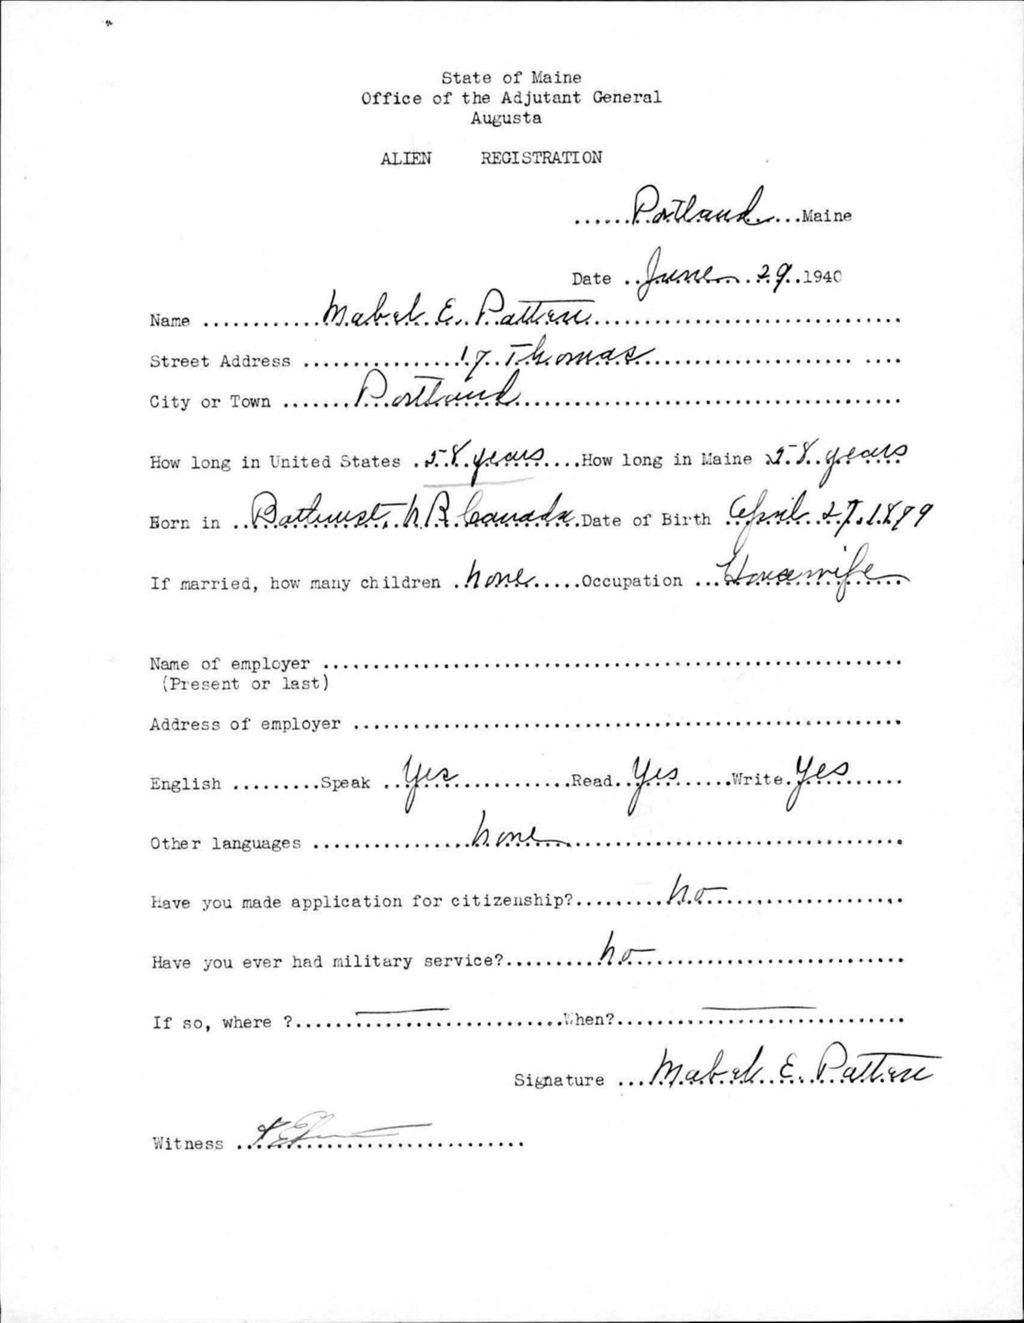 State of Maine
Office of the Adjutant General
Augusta
ALIEN REGISTRATION
......Portland...Maine
Date ..June 29..1940
Name ............Mabel E. Patten..............................
Street Address ...............17 Thomas.........................
City or Town .......Portland.......................................
How long in United States .58 years....How long in Maine 58 years
Born in ..Bathurst, N.B. Canada.Date of Birth .April 27, 1879
If married, how many children .none.....Occupation ...Housewife
Name of employer .........................................................
(Present or last)
Address of employer ......................................................
English .........Speak ..Yes...........Read..Yes......Write.Yes......
Other languages ................none.................................
Have you made application for citizenship?.........No...................
Have you ever had military service?.........No.........................
If so, where ?...........................When?.............................
Signature ...Mabel E. Patten
Witness ............................